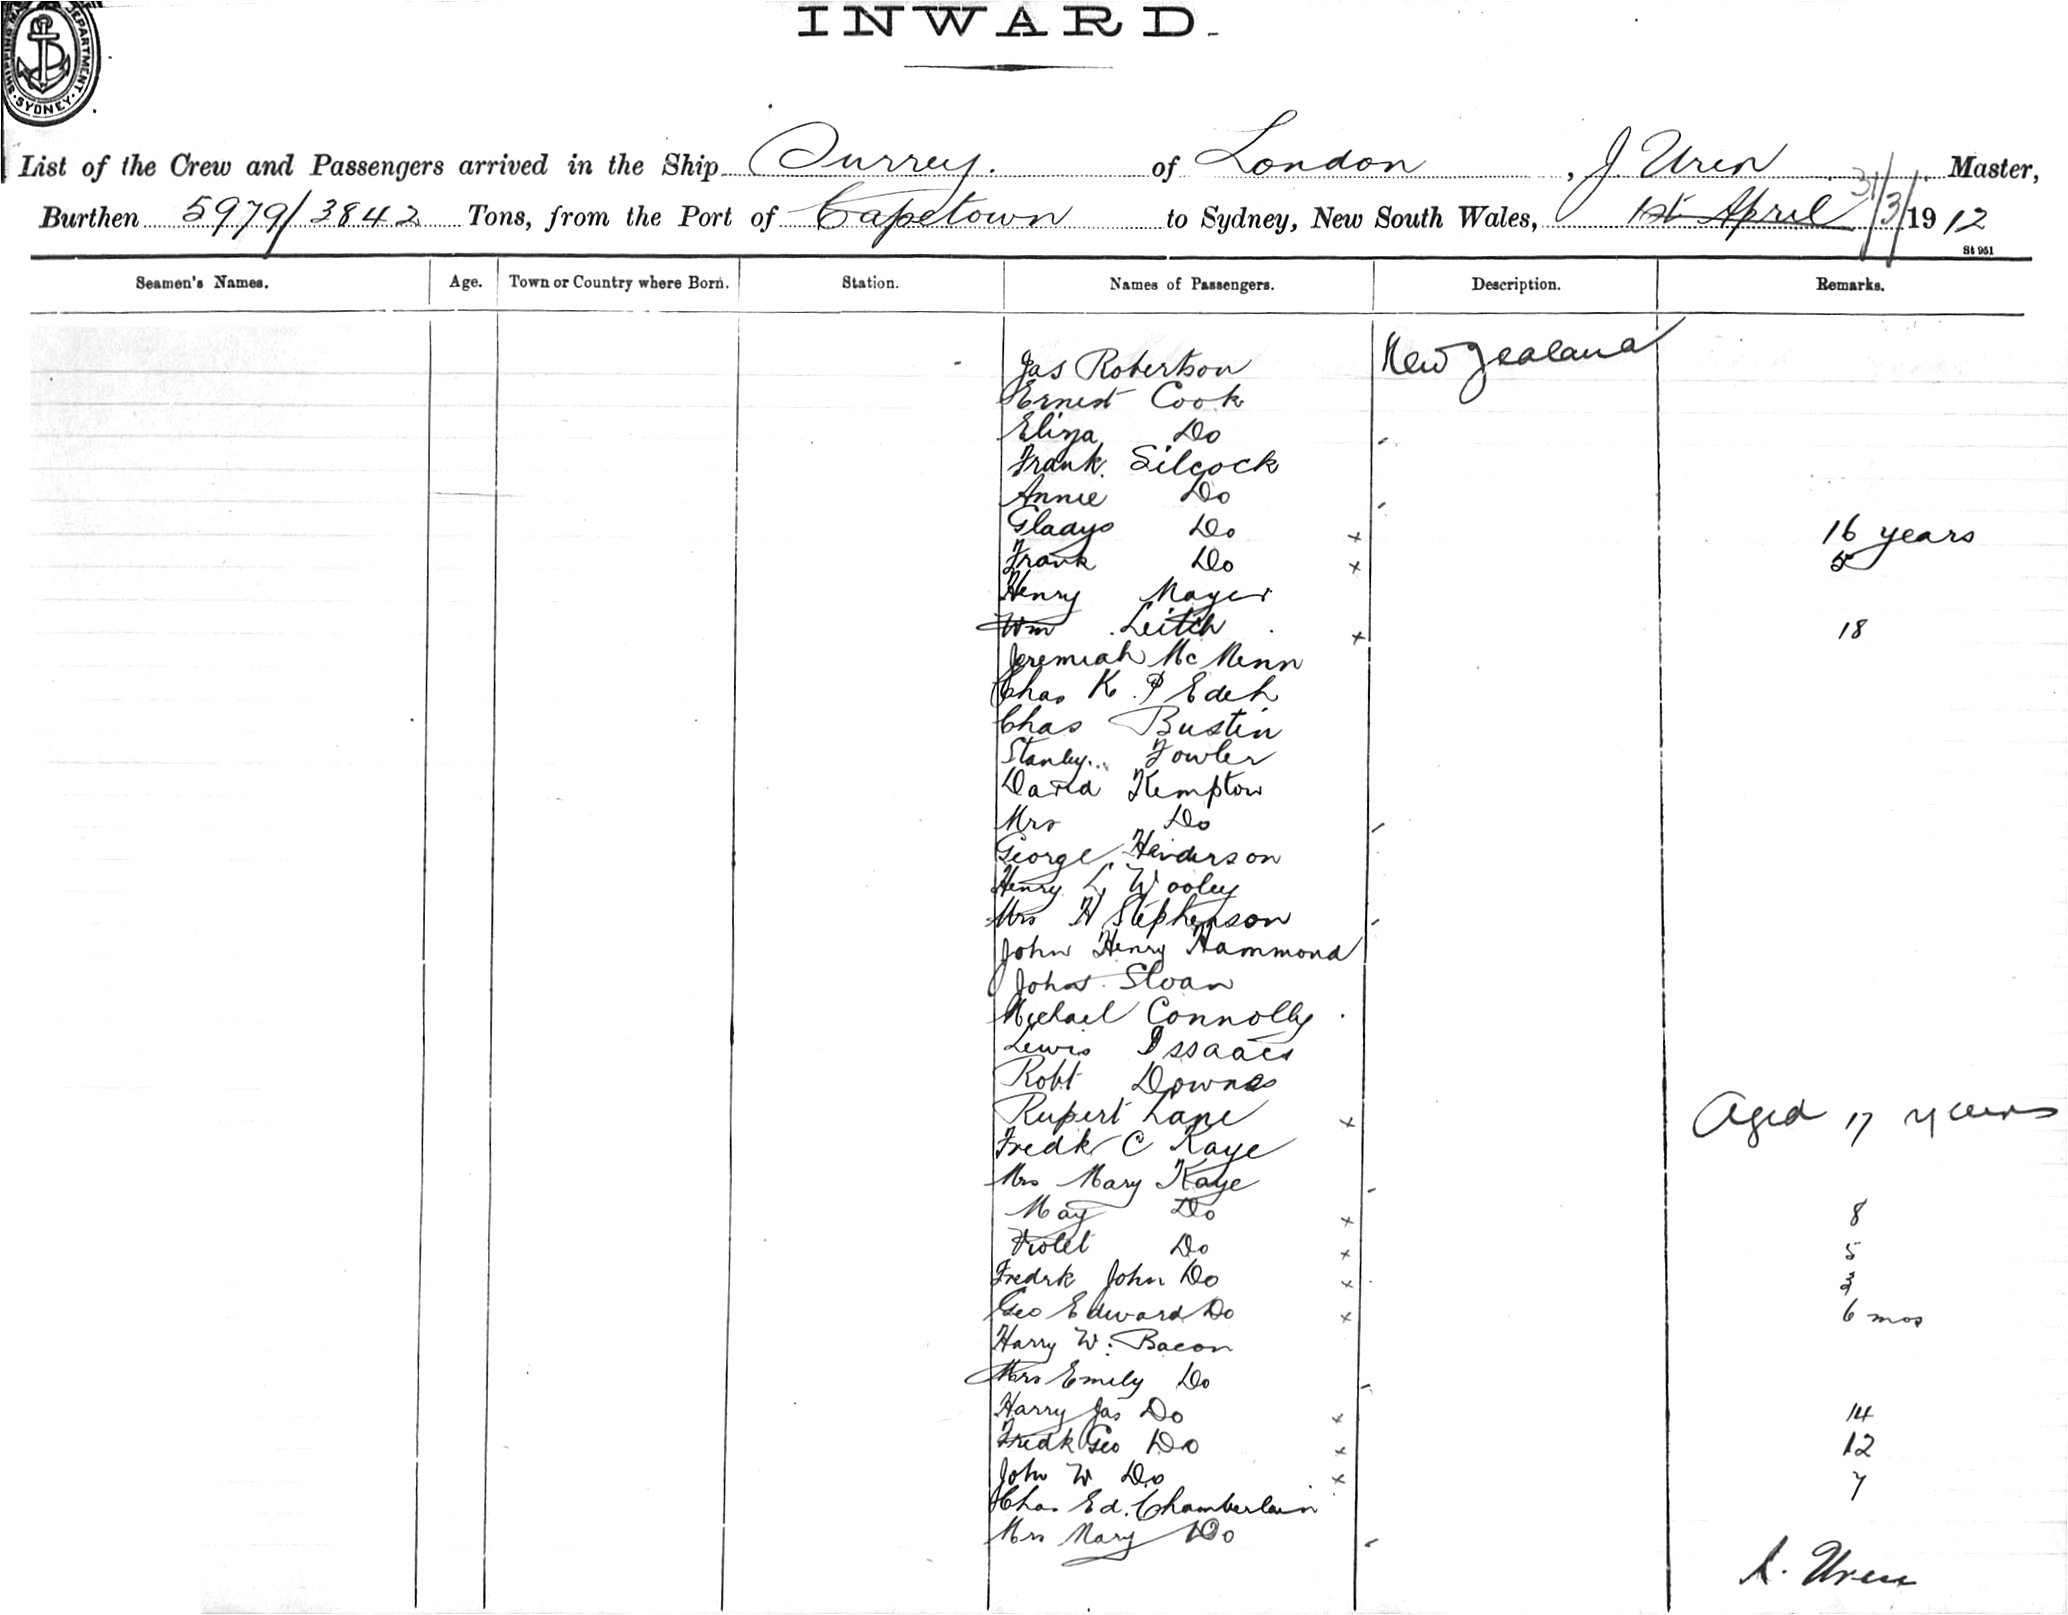 INWARD.
SHIPPING MASTER'S DEPARTMENT. SYDNEY.
List of the Crew and Passengers arrived in the Ship Surrey. of London, J. Uren Master,
Burthen 5979/3842 Tons, from the Port of Capetown to Sydney, New South Wales, 1st April 31/3/1912
St 951
Seamen's Names. Age. Town or Country where Born. Station. Names of Passengers. Description. Remarks.
Jas Robertson New Zealand
Ernest Cook
Eliza Do
Frank Silcock
Annie Do
Gladys Do x 16 years
Frank Do x
Henry Mayer
Wm Leitch x 18
Jeremiah McMenn
Chas K. P Edeh
Chas Bustin
Stanley Fowler
David Kempton
Mrs Do
George Henderson
Henry L Wooley
Mrs H Stephenson
John Henry Hammond
John Sloan
Michael Connolly
Lewis Issaacs
Robt Downes
Rupert Lane x Aged 17 years
Fredk C Kaye
Mrs Mary Kaye
May Do x 8
Violet Do x 5
Fredrk John Do x
Geo Edward Do x 6 mos
Harry W. Bacon
Mrs Emily Do
Harry Jas Do x 14
Fredk Geo Do x 12
John W Do x 7
Chas Ed. Chamberlain
Mrs Mary Do
Uren